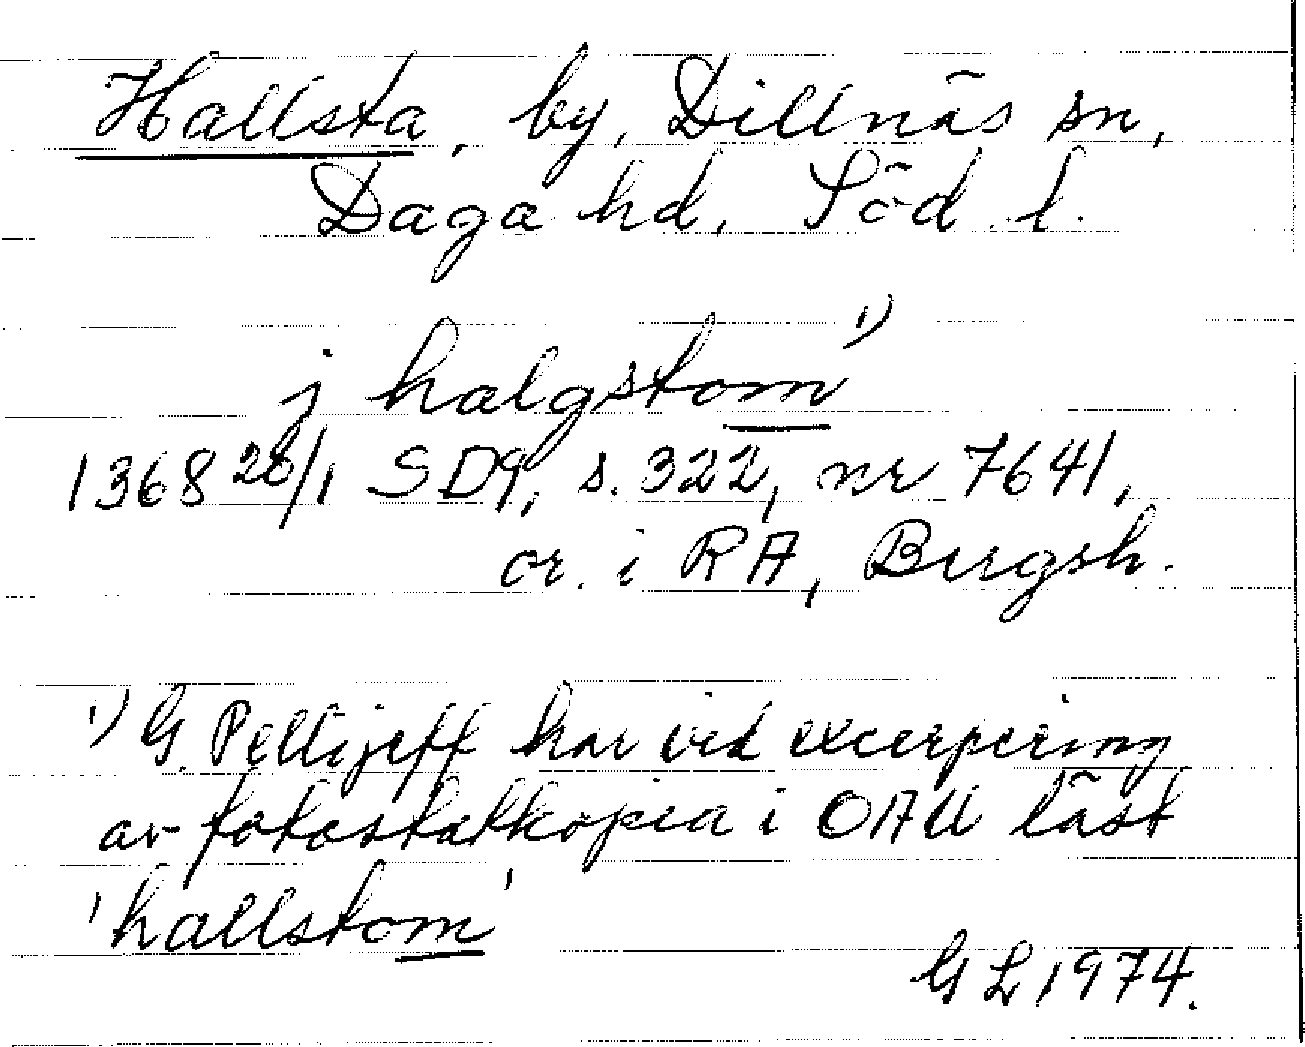 Hallsta, by, Dillnäs sn,
Daga hd, Söd. l.
j halgstom 1)
1368 28/1 SD9, s. 322, nr 7641,
or. i RA, Bergsh.
1) G. Pellijeff har vid excerpering
av fotostatkopia i OAU läst
'hallstom'
GL 1974.